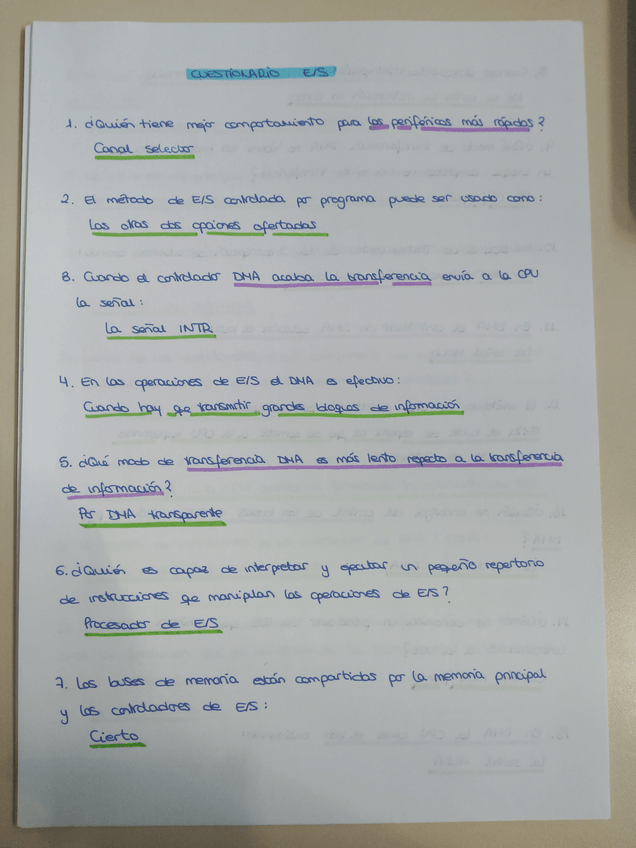 CUESTIONARIO E/S
1. ¿Quién tiene mejor comportamiento para los periféricos más rápidos?
Canal selector
2. El método de E/S controlada por programa puede ser usado como:
Las otras dos opciones ofertadas
3. Cuando el controlador DMA acaba la transferencia envía a la CPU
la señal:
La señal INTR.
4. En las operaciones de E/S el DMA es efectivo:
Cuando hay qe transmitir grandes bloques de información
5. ¿Qué modo de transferencia DMA es más lento respecto a la transferencia
de información?
Por DMA transparente
6. ¿Quién es capaz de interpretar y ejecutar un pequeño repertorio
de instrucciones qe manipulan las operaciones de E/S?
Procesador de E/S
7. Los buses de memoria están compartidos por la memoria principal
y los controladores de E/S:
Cierto